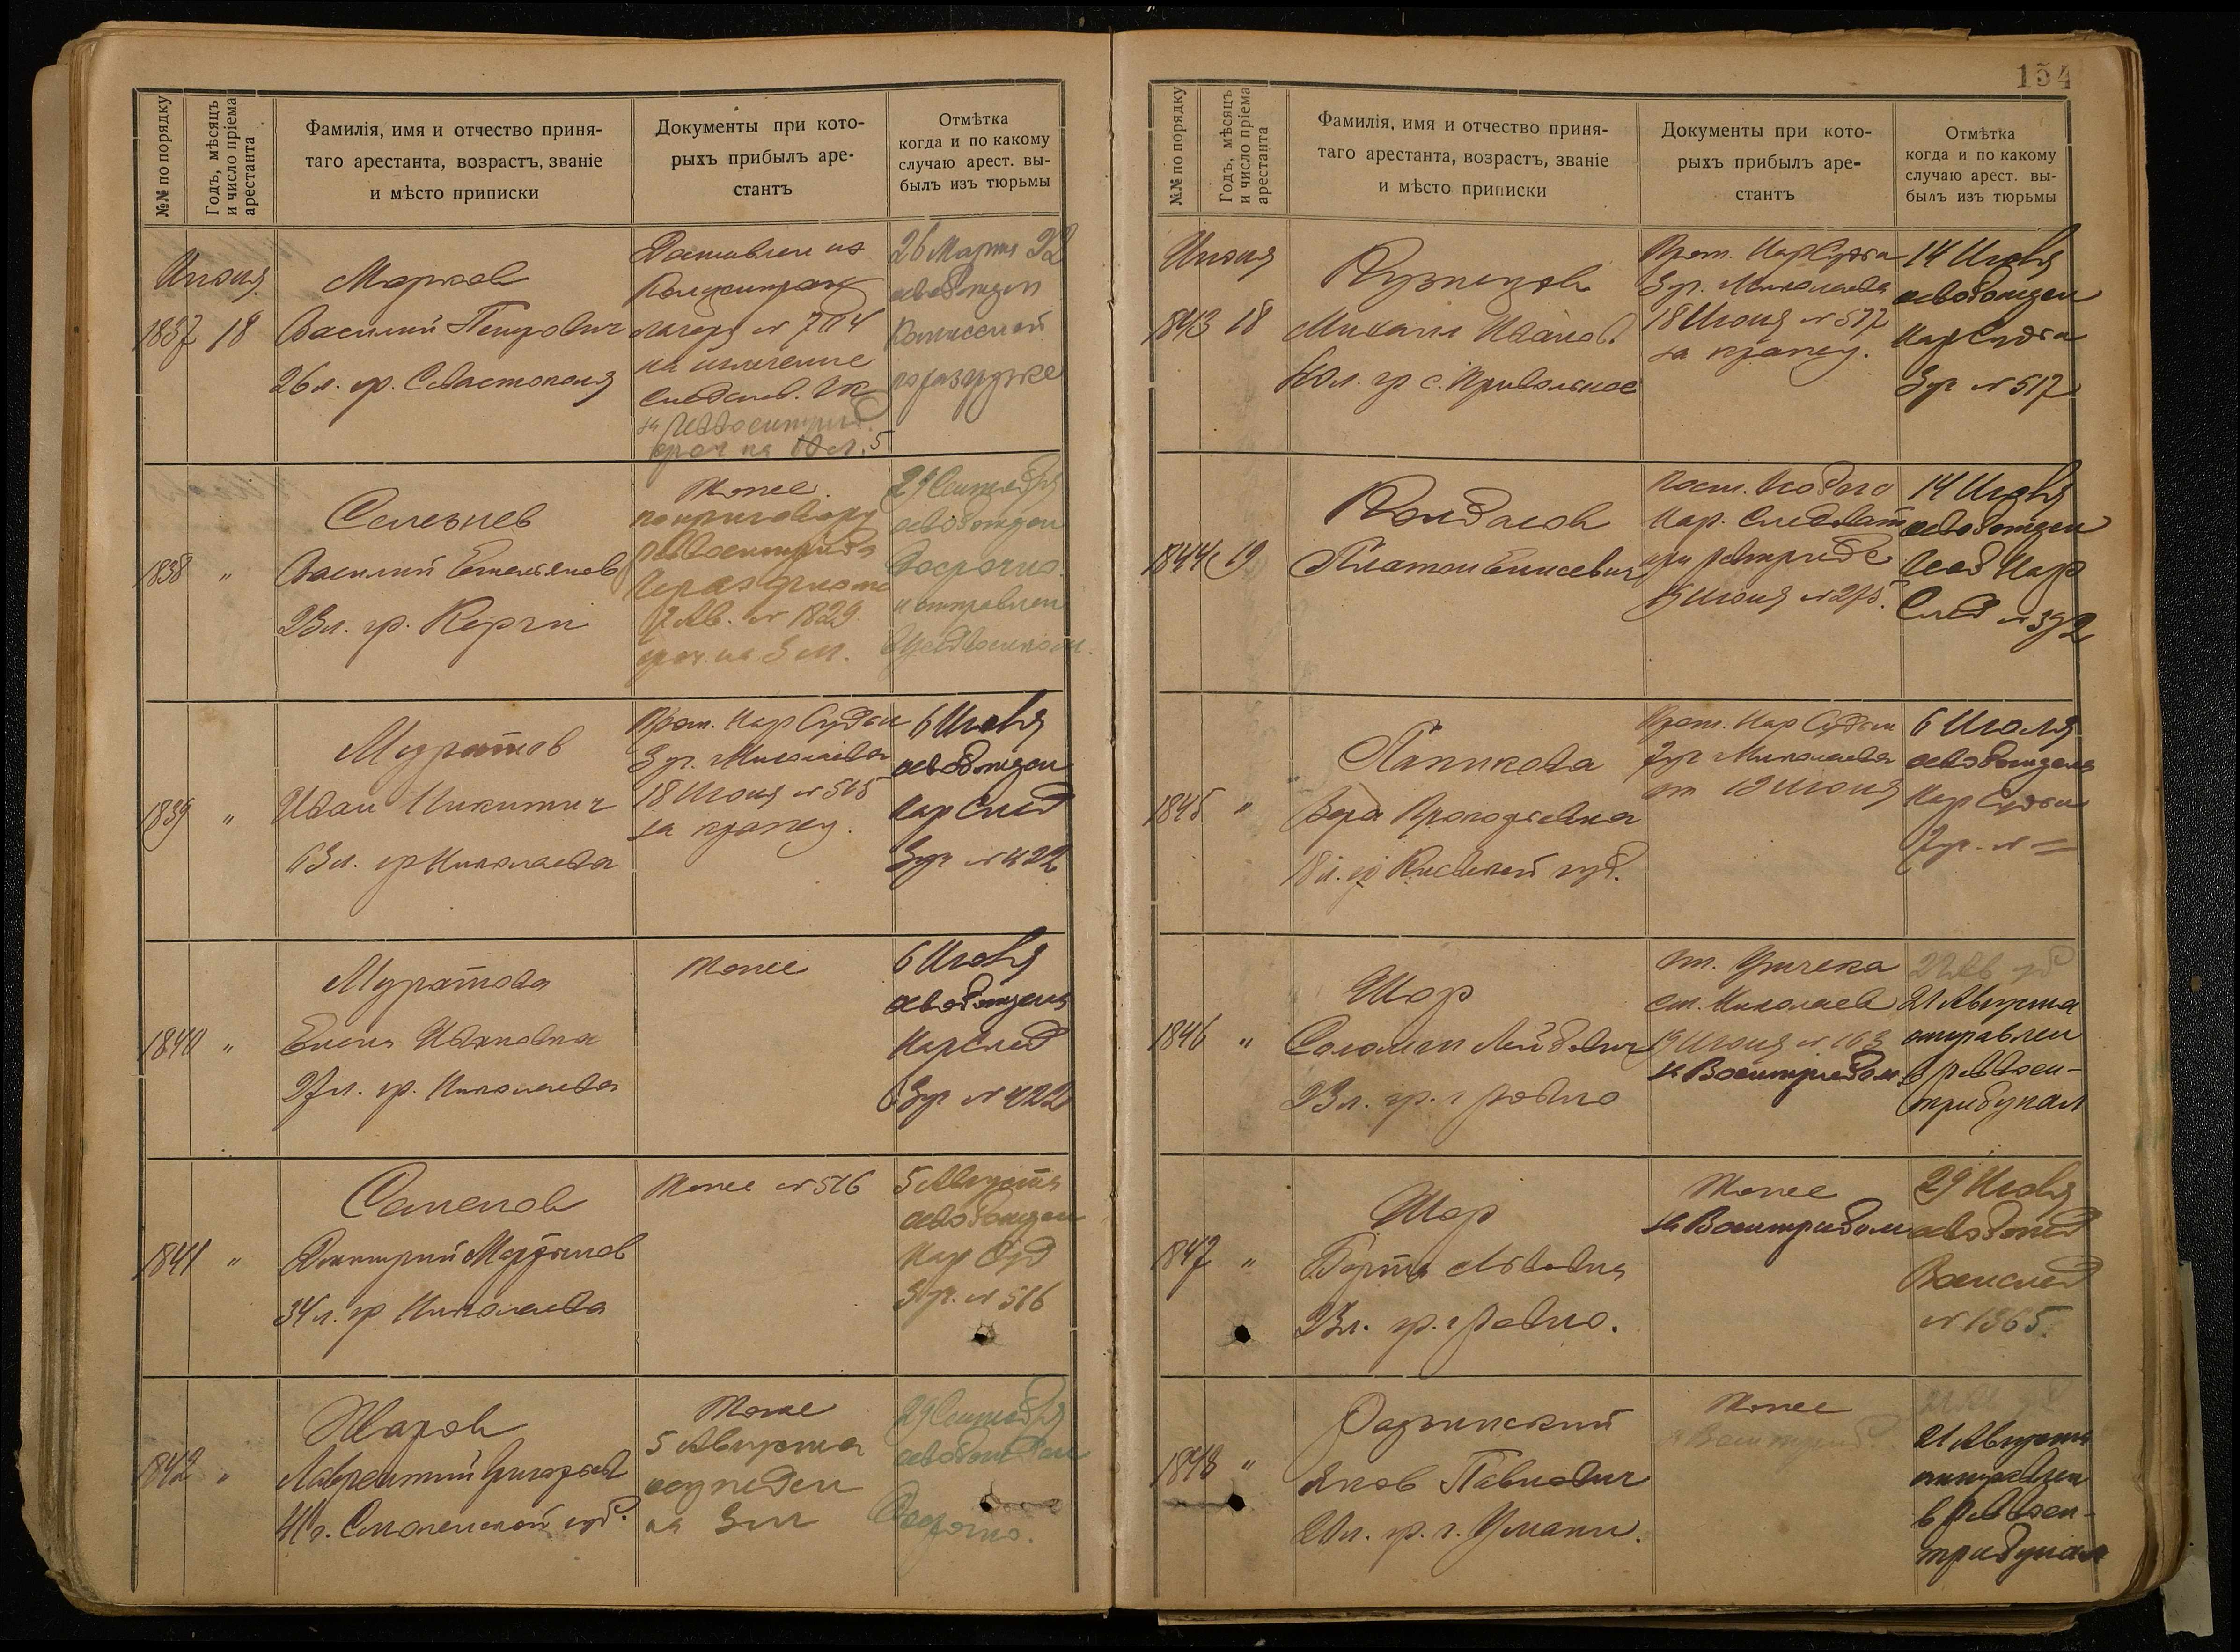 №№ по порядку
Годъ, мѣсяцъ
и число пріема
арестанта
Фамилія, имя и отчество приня-
таго арестанта, возрастъ, званіе
и мѣсто приписки
Документы при кото-
рыхъ прибылъ аре-
стантъ
Отмѣтка
когда и по какому
случаю арест. вы-
былъ изъ тюрьмы
Июня
1837 18
Марков
Василий Петрович
26 л. гр. Севастополя
Доставлен из
лагеря № 704
на излечение
26 Марта 22
освобожден
Комиссией
по разгрузке
1838 "
Селезнев
Василий Емельянов
23 л. гр. Керчи
Тоже
по приговору
7 Ав. № 1829.
29 Сентября
освобожден
досрочно
и отправлен
1839 "
Муратов
Иван Никитич
63 л. гр Николаева
Пост. Нар Судьи
3 уч. Николаева
18 Июня № 515
за кражу.
6 Июля
освобожден
Нар След
3 уч № 422
1840 "
Муратова
Елена Ивановна
27 л. гр. Николаева
Тоже
6 Июля
освобождена
Нар След
3 уч № 422
1841 "
Семенов
Дмитрий Мартынов
34 л. гр Николаева
Тоже № 516
5 Августа
освобожден
Нар Суд
3 уч. № 516
1842 "
Жаров
Лаврентий Григорьев
41 г. Смоленской губ.
Тоже
5 Августа
осужден
на 3 м
29 Сентября
освобожден
Досрочно.
154
№№ по порядку
Годъ, мѣсяцъ
и число пріема
арестанта
Фамилія, имя и отчество приня-
таго арестанта, возрастъ, званіе
и мѣсто приписки
Документы при кото-
рыхъ прибылъ аре-
стантъ
Отмѣтка
когда и по какому
случаю арест. вы-
былъ изъ тюрьмы
Июня
1843 18
Кузнецов
Михаил Иванов.
40 л. гр с. Привольное
Пост. Нар Судьи
3 уч. Николаева
18 Июня № 517
за кражу.
14 Июля
освобожден
Нар Судьи
3 уч № 517
1844 19
Платон Елисеевич
Пост.
Нар. Следоват
при
Июня
14 Июля
освобожден
Нар
След № 392
1845 "
Папкова
Вера Прокофьевна
18 л. гр Киевской губ.
Пост. Нар Судьи
7 уч Николаева
от 19 Июня
6 Июля
освобождена
Нар Судьи
7 уч. № =
1846 "
Шор
Соломон Лейбович
23 л. гр. г Ровно
От.
ст. Николаев
19 Июня № 163
за Воентрибом
21 Августа
отправлен
в Реввоен-
трибунал
1847 "
Шор
Берта Львовна
23 л. гр. г Ровно.
Тоже
за Воентрибом
29 Июля
освобожд
Военслед
№ 1365.
1848 "
Яков Павлович
20 л. гр. г. Умани.
Тоже
21 Августа
отправлен
в Реввоен-
трибунал